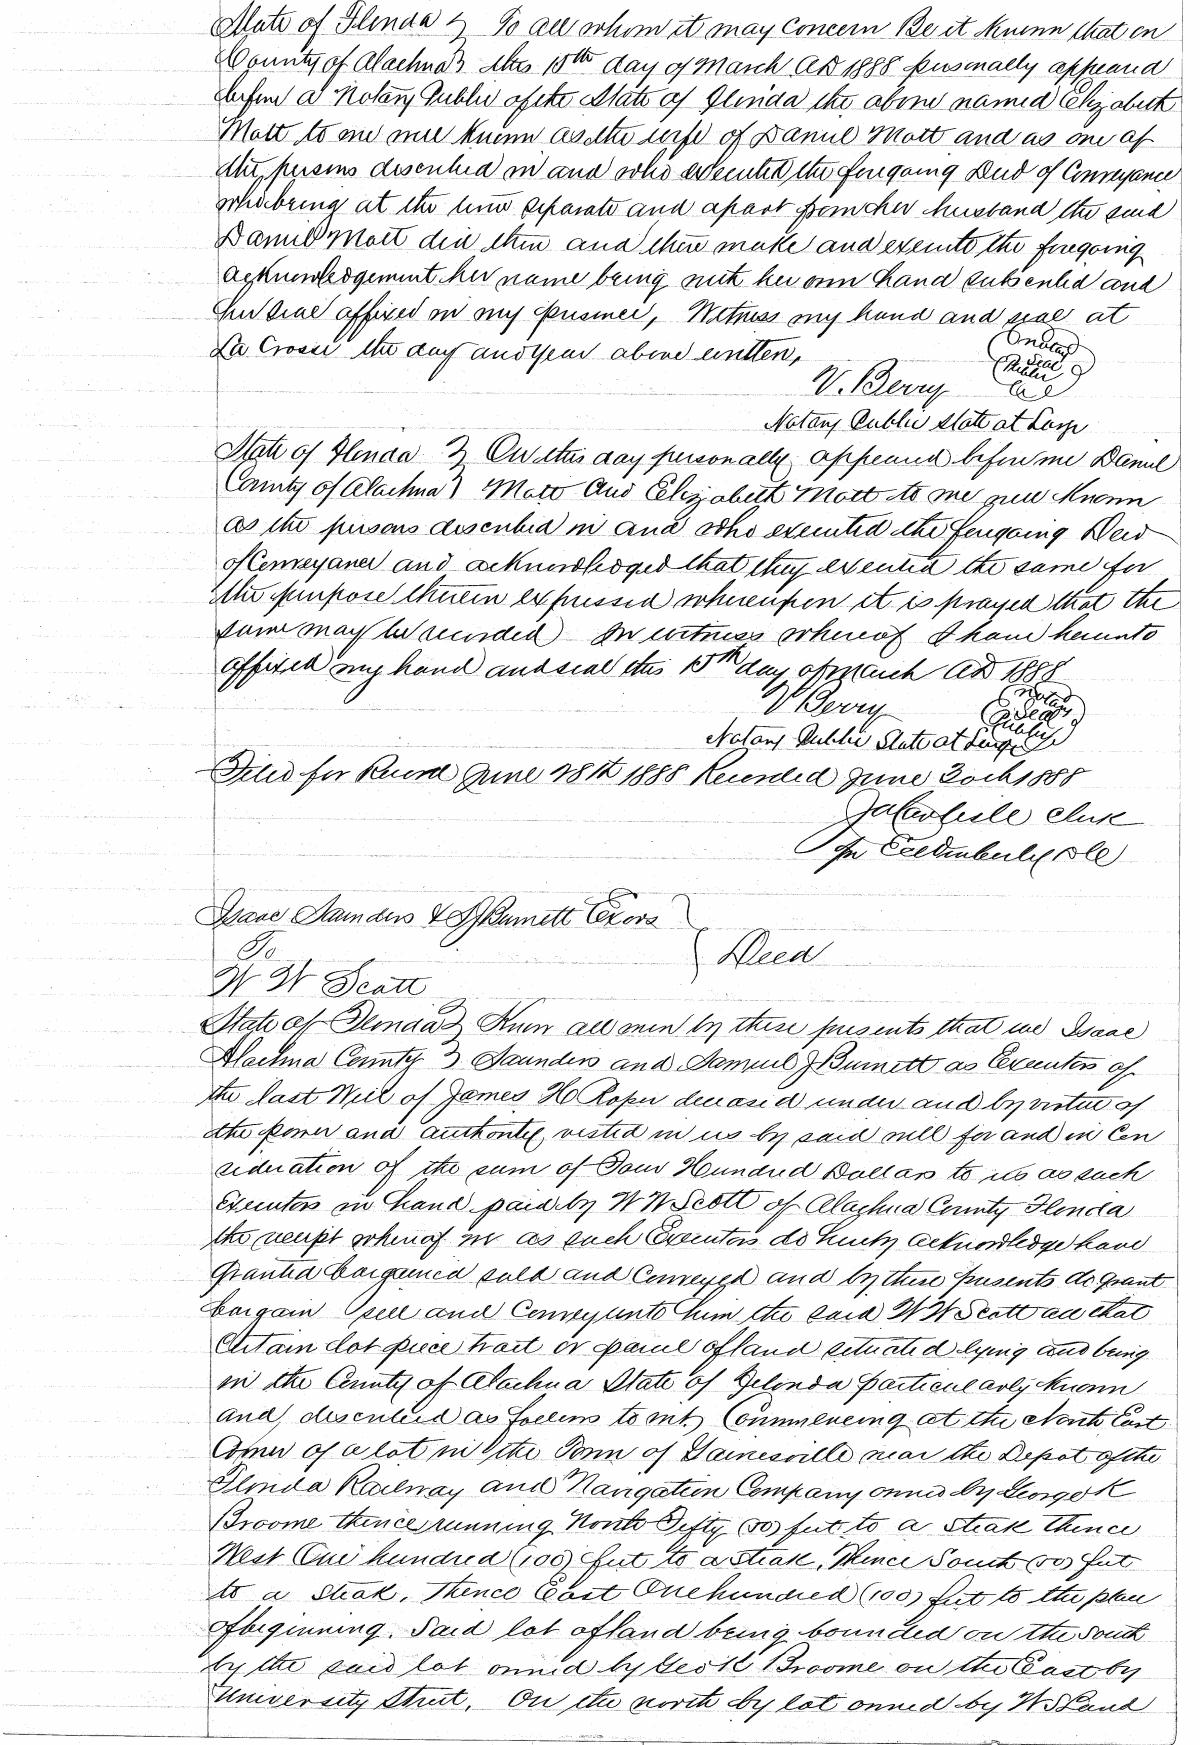 State of Florida } To all whom it may Concern Be it Known that on
County of Alachua } this 15th day of March AD 1888 personally appeared
before a Notary Public of the State of Florida the above named Elizabeth
Mott to me well Known as the wife of Daniel Mott and as one of
the persons described in and who executed the foregoing Deed of Conveyance
who being at the time separate and apart from her husband the said
Daniel Mott did then and there make and execute the foregoing
acknowledgement her name being with her own hand subscribed and
her seal affixed in my presence, Witness my hand and seal at
La Crosse the day and year above written,
Notary
Seal
Public
V. Berry
Notary Public State at Large
State of Florida } On this day personally appeared before me Daniel
County of Alachua } Mott And Elizabeth Mott to me well Known
as the persons described in and who executed the foregoing Deed
of Conveyance and acknowledged that they executed the same for
the purpose therein expressed whereupon it is prayed that the
same may be recorded In witness whereof I have hereunto
affixed my hand and seal this 15th day of March AD 1888
V Berry
Notary
Seal
Public
Notary Public State at Large
Filed for Record June 28th 1888 Recorded June 30th 1888
JA Carlisle Clerk
Isaac Saunders & SJ Burnett Exors
To } Deed
W W Scott
State of Florida } Know all men by these presents that we Isaac
Alachua County } Saunders and Samuel J Burnett as Executors of
the last Will of James H Roper deceased under and by virtue of
the power and authority vested in us by said will for and in Con
sideration of the sum of Four Hundred Dollars to us as such
Executors in hand paid by W W Scott of Alachua County Florida
the receipt whereof we as such Executors do hereby acknowledge have
Granted bargained sold and Conveyed and by these presents do grant
bargain sell and Convey unto him the said W W Scott all that
Certain lot piece tract or parcel of land situated lying and being
in the County of Alachua State of Florida particularly known
and described as follows to wit, Commencing at the North East
Corner of a lot in the Town of Gainesville near the Depot of the
Florida Railway and Navigation Company owned by George K
Broome thence running North Fifty (50) feet to a steak thence
West One hundred (100) feet to a steak, Thence South (50) feet
to a steak, Thence East One hundred (100) feet to the place
of beginning. Said lot of land being bounded on the South
by the said lot owned by Geo K Broome on the East by
University Street, On the north by lot owned by W S Land